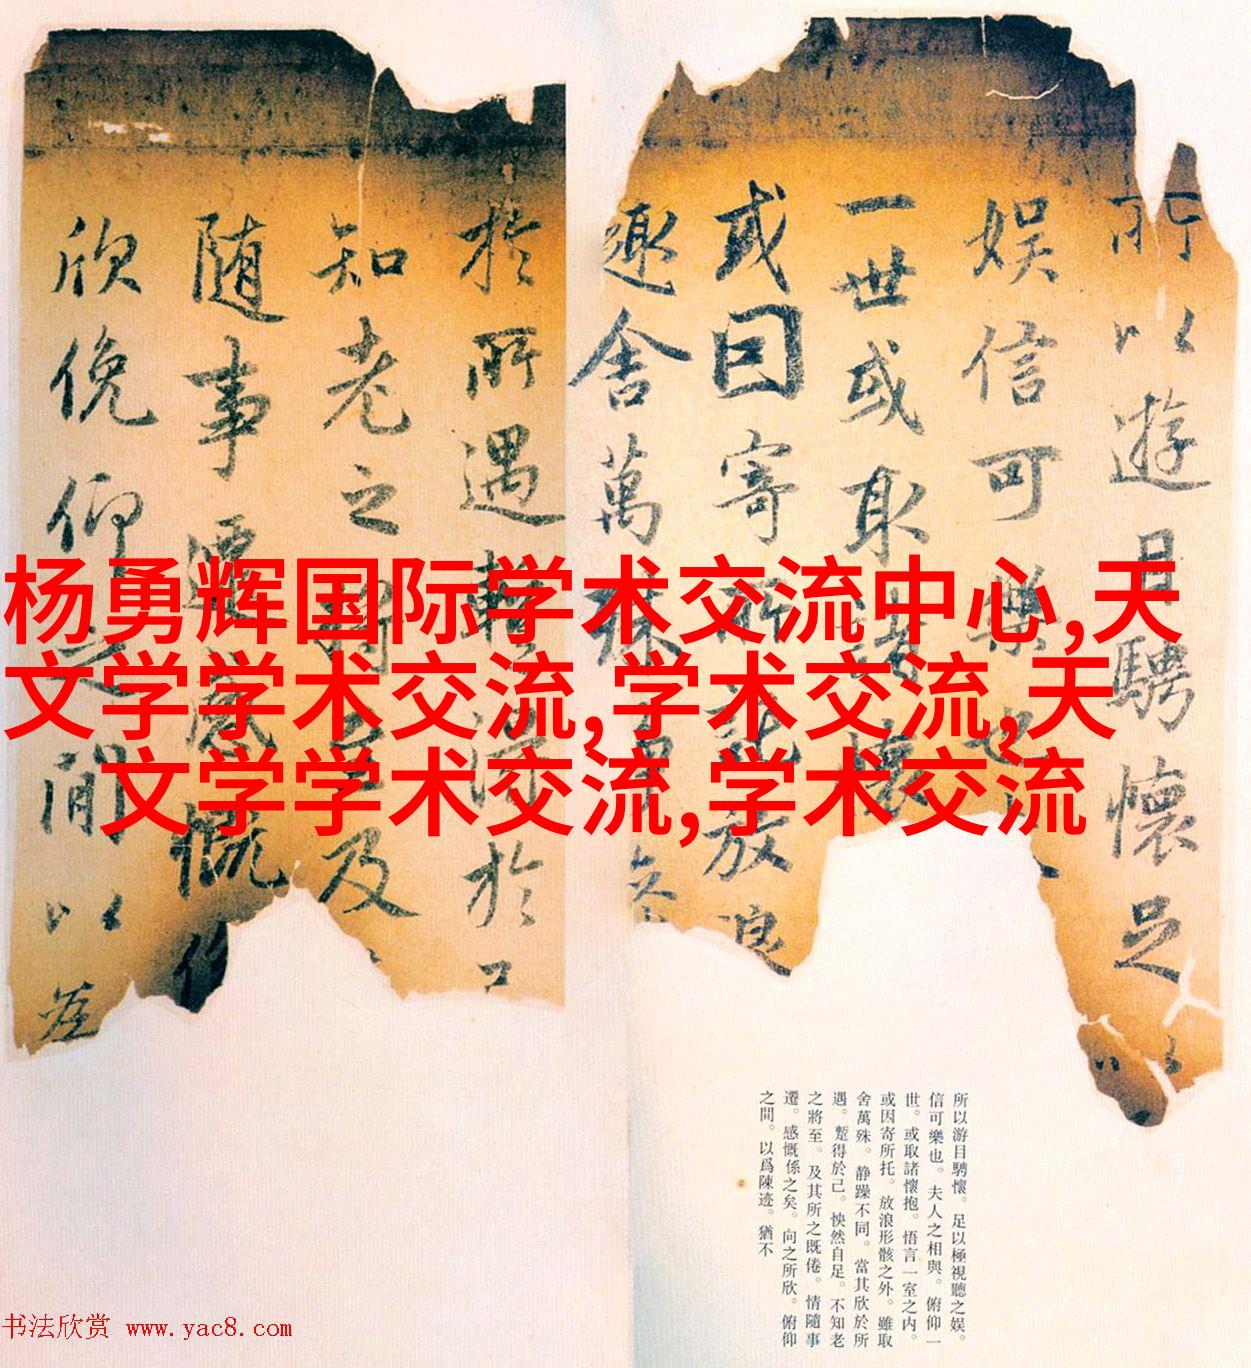 所以遊目騁懷足
娱信可樂也
一世或取諸懷
或因寄所託放浪
趣舍萬殊静
於所遇輒得於己
知老之將至及
随事遷感慨係
欣俛仰之間以為
杨勇辉国际学术交流中心,天
文学学术交流,学术交流,天
文学学术交流,学术交流
所以游目騁懷。足以極視聽之娱。
信可樂也。夫人之相與。俯仰一
世。或取諸懷抱。悟言一室之内。
或因寄所托。放浪形骸之外。雖取
舍萬殊。静躁不同。當其欣於所
遇。蹔得於己。怏然自足。不知老
之將至。及其所之既倦。情隨事
遷。感慨係之矣。向之所欣。俯仰
之間。以爲陳迹。猶不
书法欣赏 www.yac8.com